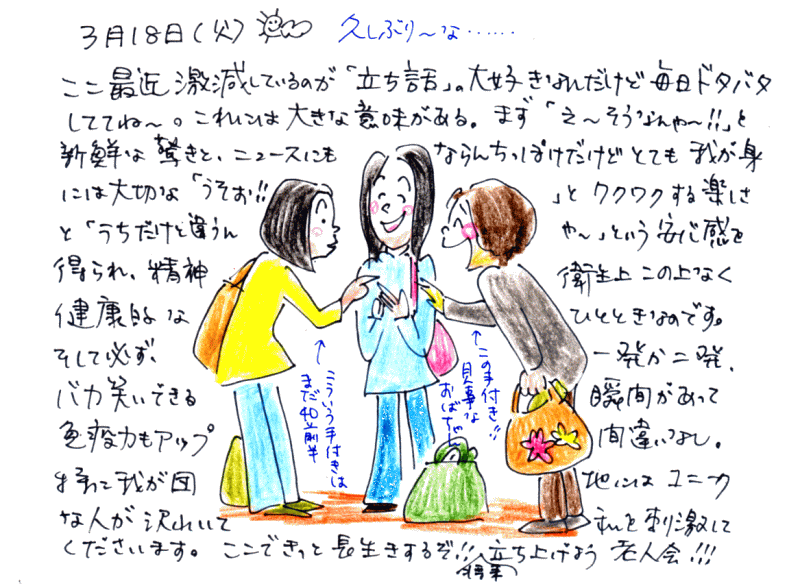 3月18日(火) 久しぶり〜な……
ここ最近激減しているのが「立ち話」。大好きなんだけど毎日ドタバタ
しててね〜。これには大きな意味がある。まず「え〜そうなんや〜!!」と
新鮮な驚きと、ニュースにも ならんちっぽけだけどとても我が身
には大切な「うそお!! 」とワクワクする楽しさ
と「うちだけと違うん や〜」という安心感を
得られ、精神 衛生上この上なく
健康的な ひとときなのです。
そして必ず、 一発か二発、
バカ笑いできる 瞬間があって
免疫力もアップ 間違いなし。
特に我が団 地にはユニーク
な人が沢山いて 私を刺激して
くださいます。ここできっと長生きするぞ!! 将来 立ち上げよう 老人会!!!
こういう手付きは
まだ40前半
この手付き!!
見事な
おばちゃん